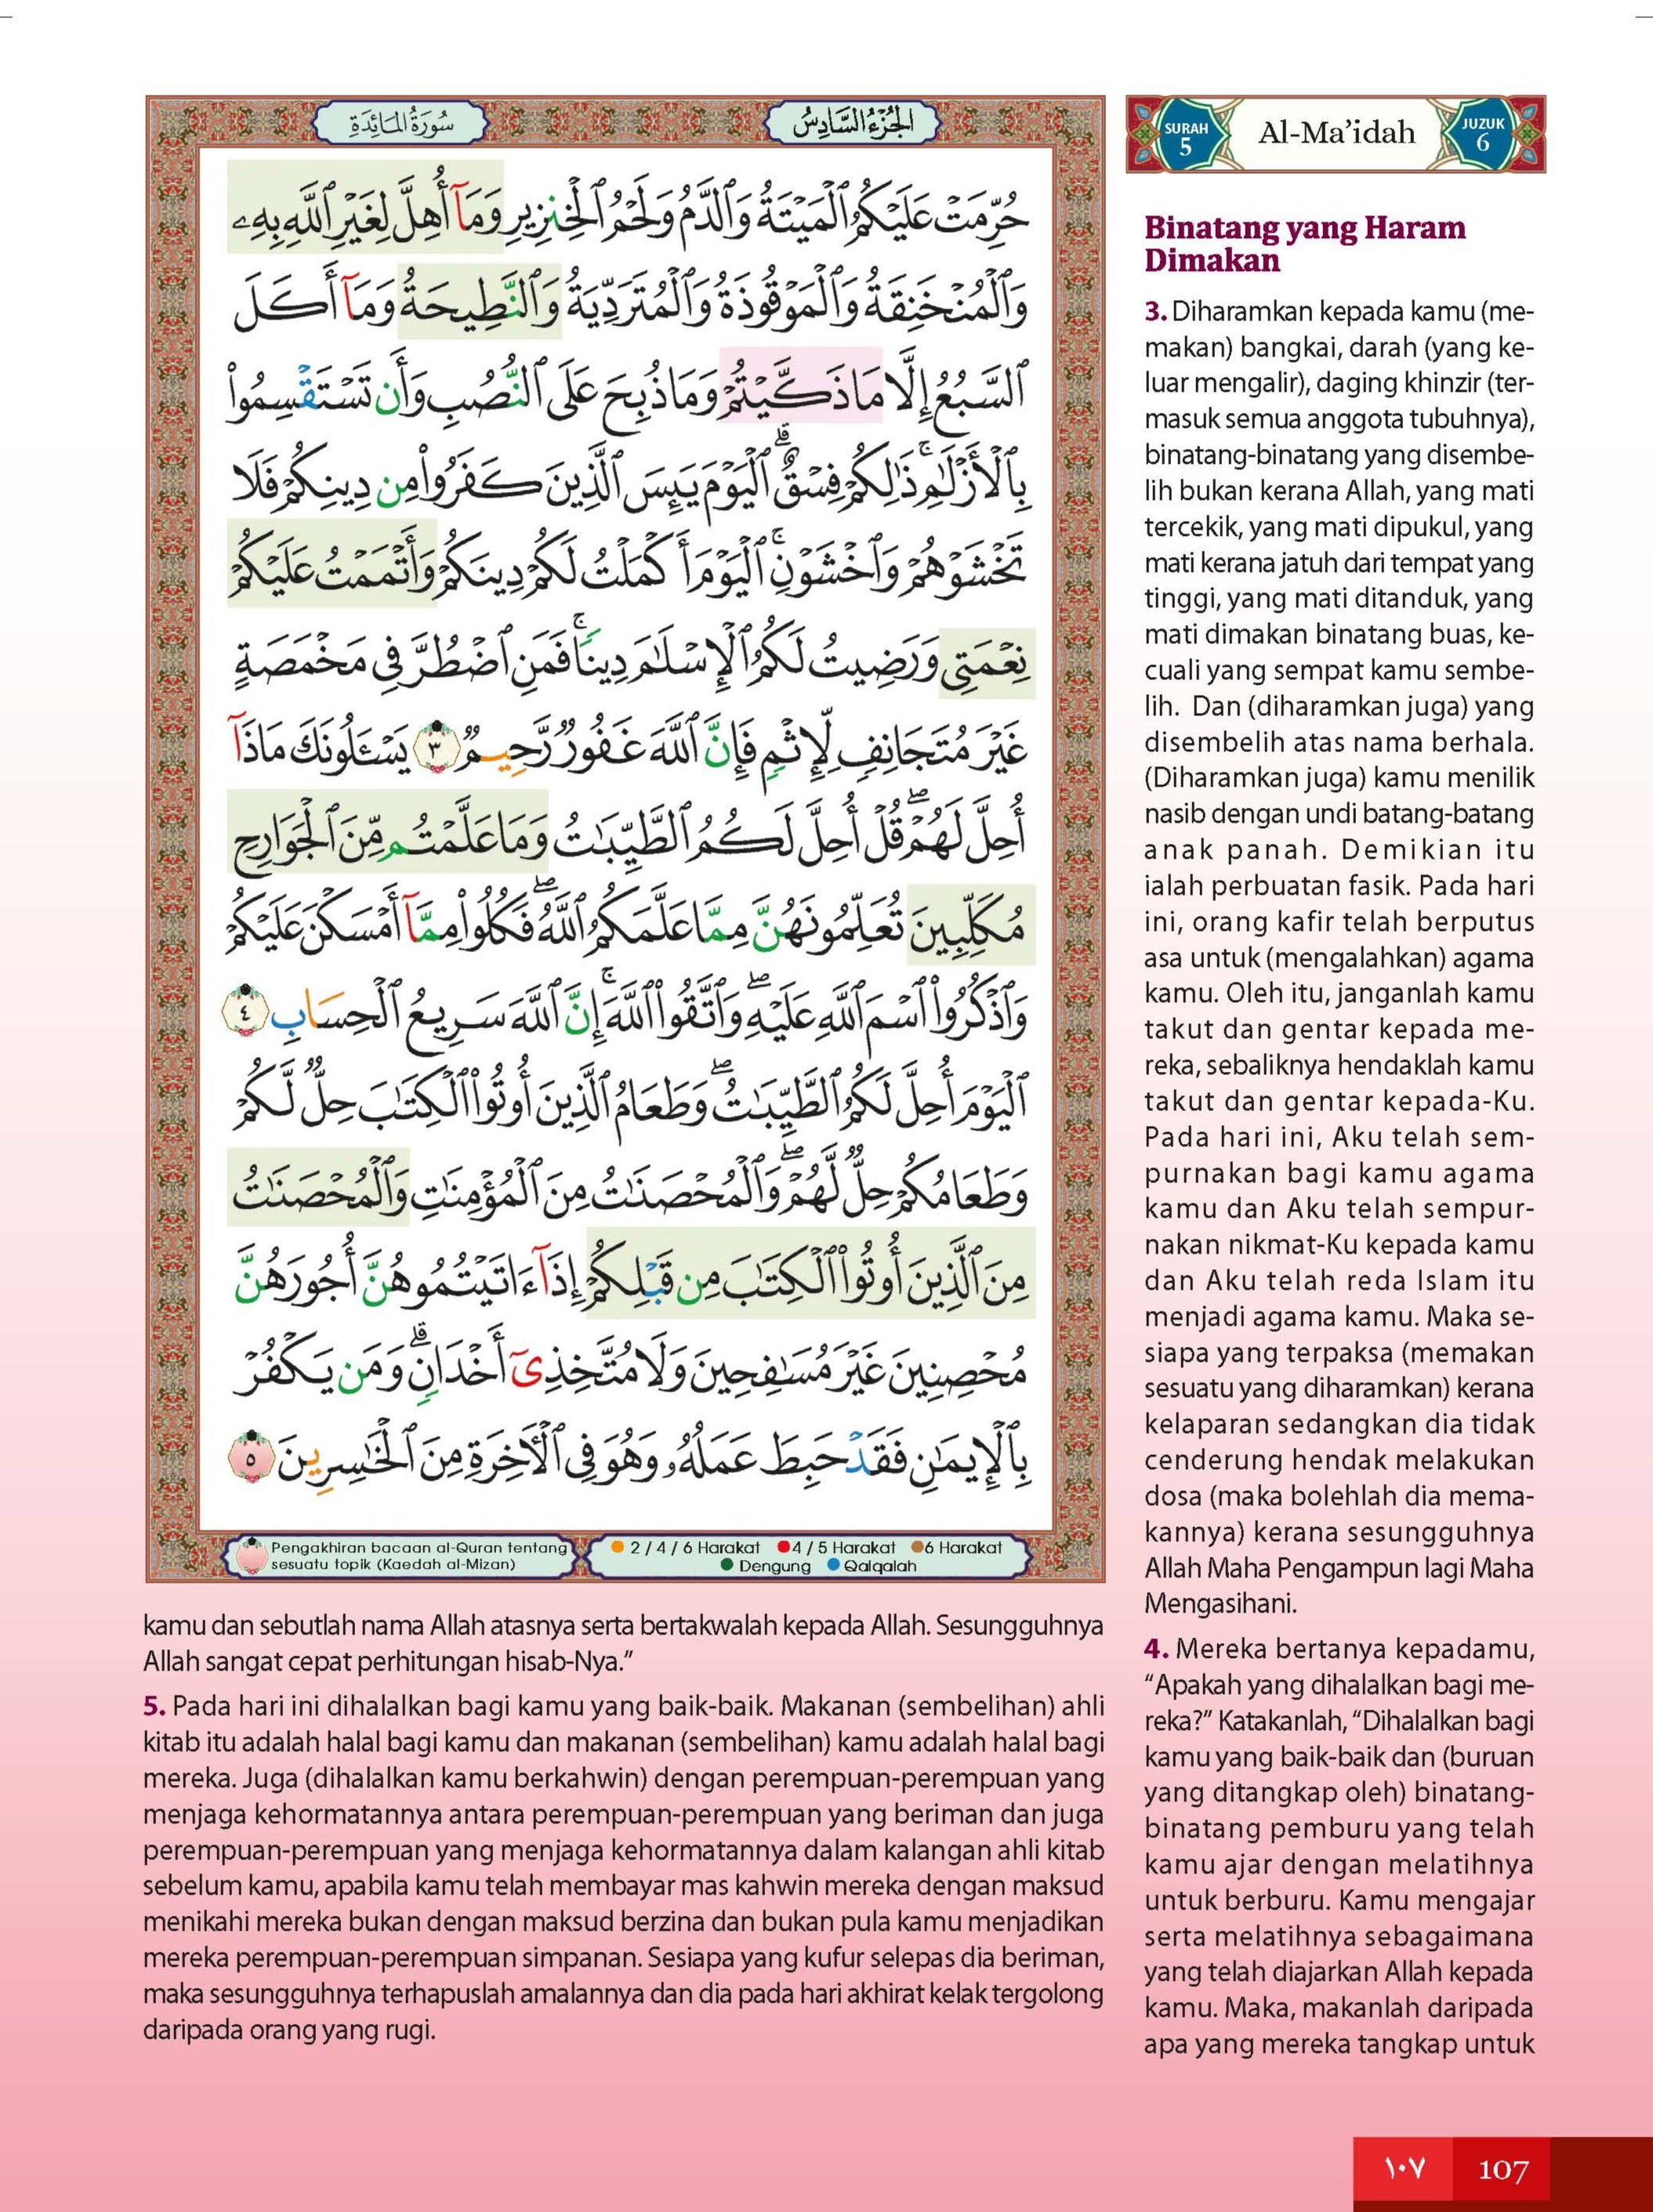 سُورَةُ المَائِدَةِ
الجُزْءُ السَّادِسُ
حُرِّمَتْ عَلَيْكُمُ ٱلْمَيْتَةُ وَٱلدَّمُ وَلَحْمُ ٱلْخِنزِيرِ وَمَآ أُهِلَّ لِغَيْرِ ٱللَّهِ بِهِۦ
وَٱلْمُنْخَنِقَةُ وَٱلْمَوْقُوذَةُ وَٱلْمُتَرَدِّيَةُ وَٱلنَّطِيحَةُ وَمَآ أَكَلَ
ٱلسَّبُعُ إِلَّا مَا ذَكَّيْتُمْ وَمَا ذُبِحَ عَلَى ٱلنُّصُبِ وَأَن تَسْتَقْسِمُوا۟
بِٱلْأَزْلَٰمِ ۚ ذَٰلِكُمْ فِسْقٌ ۗ ٱلْيَوْمَ يَئِسَ ٱلَّذِينَ كَفَرُوا۟ مِن دِينِكُمْ فَلَا
تَخْشَوْهُمْ وَٱخْشَوْنِ ۚ ٱلْيَوْمَ أَكْمَلْتُ لَكُمْ دِينَكُمْ وَأَتْمَمْتُ عَلَيْكُمْ
نِعْمَتِى وَرَضِيتُ لَكُمُ ٱلْإِسْلَٰمَ دِينًا ۚ فَمَنِ ٱضْطُرَّ فِى مَخْمَصَةٍ
غَيْرَ مُتَجَانِفٍ لِّإِثْمٍ فَإِنَّ ٱللَّهَ غَفُورٌ رَّحِيمٌ ٣ يَسْـَٔلُونَكَ مَاذَآ
أُحِلَّ لَهُمْ ۖ قُلْ أُحِلَّ لَكُمُ ٱلطَّيِّبَٰتُ وَمَا عَلَّمْتُم مِّنَ ٱلْجَوَارِحِ
مُكَلِّبِينَ تُعَلِّمُونَهُنَّ مِمَّا عَلَّمَكُمُ ٱللَّهُ ۖ فَكُلُوا۟ مِمَّآ أَمْسَكْنَ عَلَيْكُمْ
وَٱذْكُرُوا۟ ٱسْمَ ٱللَّهِ عَلَيْهِ ۖ وَٱتَّقُوا۟ ٱللَّهَ ۚ إِنَّ ٱللَّهَ سَرِيعُ ٱلْحِسَابِ ٤
ٱلْيَوْمَ أُحِلَّ لَكُمُ ٱلطَّيِّبَٰتُ ۖ وَطَعَامُ ٱلَّذِينَ أُوتُوا۟ ٱلْكِتَٰبَ حِلٌّ لَّكُمْ
وَطَعَامُكُمْ حِلٌّ لَّهُمْ ۖ وَٱلْمُحْصَنَٰتُ مِنَ ٱلْمُؤْمِنَٰتِ وَٱلْمُحْصَنَٰتُ
مِنَ ٱلَّذِينَ أُوتُوا۟ ٱلْكِتَٰبَ مِن قَبْلِكُمْ إِذَآ ءَاتَيْتُمُوهُنَّ أُجُورَهُنَّ
مُحْصِنِينَ غَيْرَ مُسَٰفِحِينَ وَلَا مُتَّخِذِىٓ أَخْدَانٍ ۗ وَمَن يَكْفُرْ
بِٱلْإِيمَٰنِ فَقَدْ حَبِطَ عَمَلُهُۥ وَهُوَ فِى ٱلْءَاخِرَةِ مِنَ ٱلْخَٰسِرِينَ ٥
Pengakhiran bacaan al-Quran tentang
sesuatu topik (Kaedah al-Mizan)
2 / 4 / 6 Harakat 4 / 5 Harakat 6 Harakat
Dengung Qalqalah
SURAH
5
Al-Ma’idah
JUZUK
6
Binatang yang Haram
Dimakan
3. Diharamkan kepada kamu (me-
makan) bangkai, darah (yang ke-
luar mengalir), daging khinzir (ter-
masuk semua anggota tubuhnya),
binatang-binatang yang disembe-
lih bukan kerana Allah, yang mati
tercekik, yang mati dipukul, yang
mati kerana jatuh dari tempat yang
tinggi, yang mati ditanduk, yang
mati dimakan binatang buas, ke-
cuali yang sempat kamu sembe-
lih. Dan (diharamkan juga) yang
disembelih atas nama berhala.
(Diharamkan juga) kamu menilik
nasib dengan undi batang-batang
anak panah. Demikian itu
ialah perbuatan fasik. Pada hari
ini, orang kafir telah berputus
asa untuk (mengalahkan) agama
kamu. Oleh itu, janganlah kamu
takut dan gentar kepada me-
reka, sebaliknya hendaklah kamu
takut dan gentar kepada-Ku.
Pada hari ini, Aku telah sem-
purnakan bagi kamu agama
kamu dan Aku telah sempur-
nakan nikmat-Ku kepada kamu
dan Aku telah reda Islam itu
menjadi agama kamu. Maka se-
siapa yang terpaksa (memakan
sesuatu yang diharamkan) kerana
kelaparan sedangkan dia tidak
cenderung hendak melakukan
dosa (maka bolehlah dia mema-
kannya) kerana sesungguhnya
Allah Maha Pengampun lagi Maha
Mengasihani.
4. Mereka bertanya kepadamu,
“Apakah yang dihalalkan bagi me-
reka?” Katakanlah, “Dihalalkan bagi
kamu yang baik-baik dan (buruan
yang ditangkap oleh) binatang-
binatang pemburu yang telah
kamu ajar dengan melatihnya
untuk berburu. Kamu mengajar
serta melatihnya sebagaimana
yang telah diajarkan Allah kepada
kamu. Maka, makanlah daripada
apa yang mereka tangkap untuk
kamu dan sebutlah nama Allah atasnya serta bertakwalah kepada Allah. Sesungguhnya
Allah sangat cepat perhitungan hisab-Nya.”
5. Pada hari ini dihalalkan bagi kamu yang baik-baik. Makanan (sembelihan) ahli
kitab itu adalah halal bagi kamu dan makanan (sembelihan) kamu adalah halal bagi
mereka. Juga (dihalalkan kamu berkahwin) dengan perempuan-perempuan yang
menjaga kehormatannya antara perempuan-perempuan yang beriman dan juga
perempuan-perempuan yang menjaga kehormatannya dalam kalangan ahli kitab
sebelum kamu, apabila kamu telah membayar mas kahwin mereka dengan maksud
menikahi mereka bukan dengan maksud berzina dan bukan pula kamu menjadikan
mereka perempuan-perempuan simpanan. Sesiapa yang kufur selepas dia beriman,
maka sesungguhnya terhapuslah amalannya dan dia pada hari akhirat kelak tergolong
daripada orang yang rugi.
١٠٧ 107